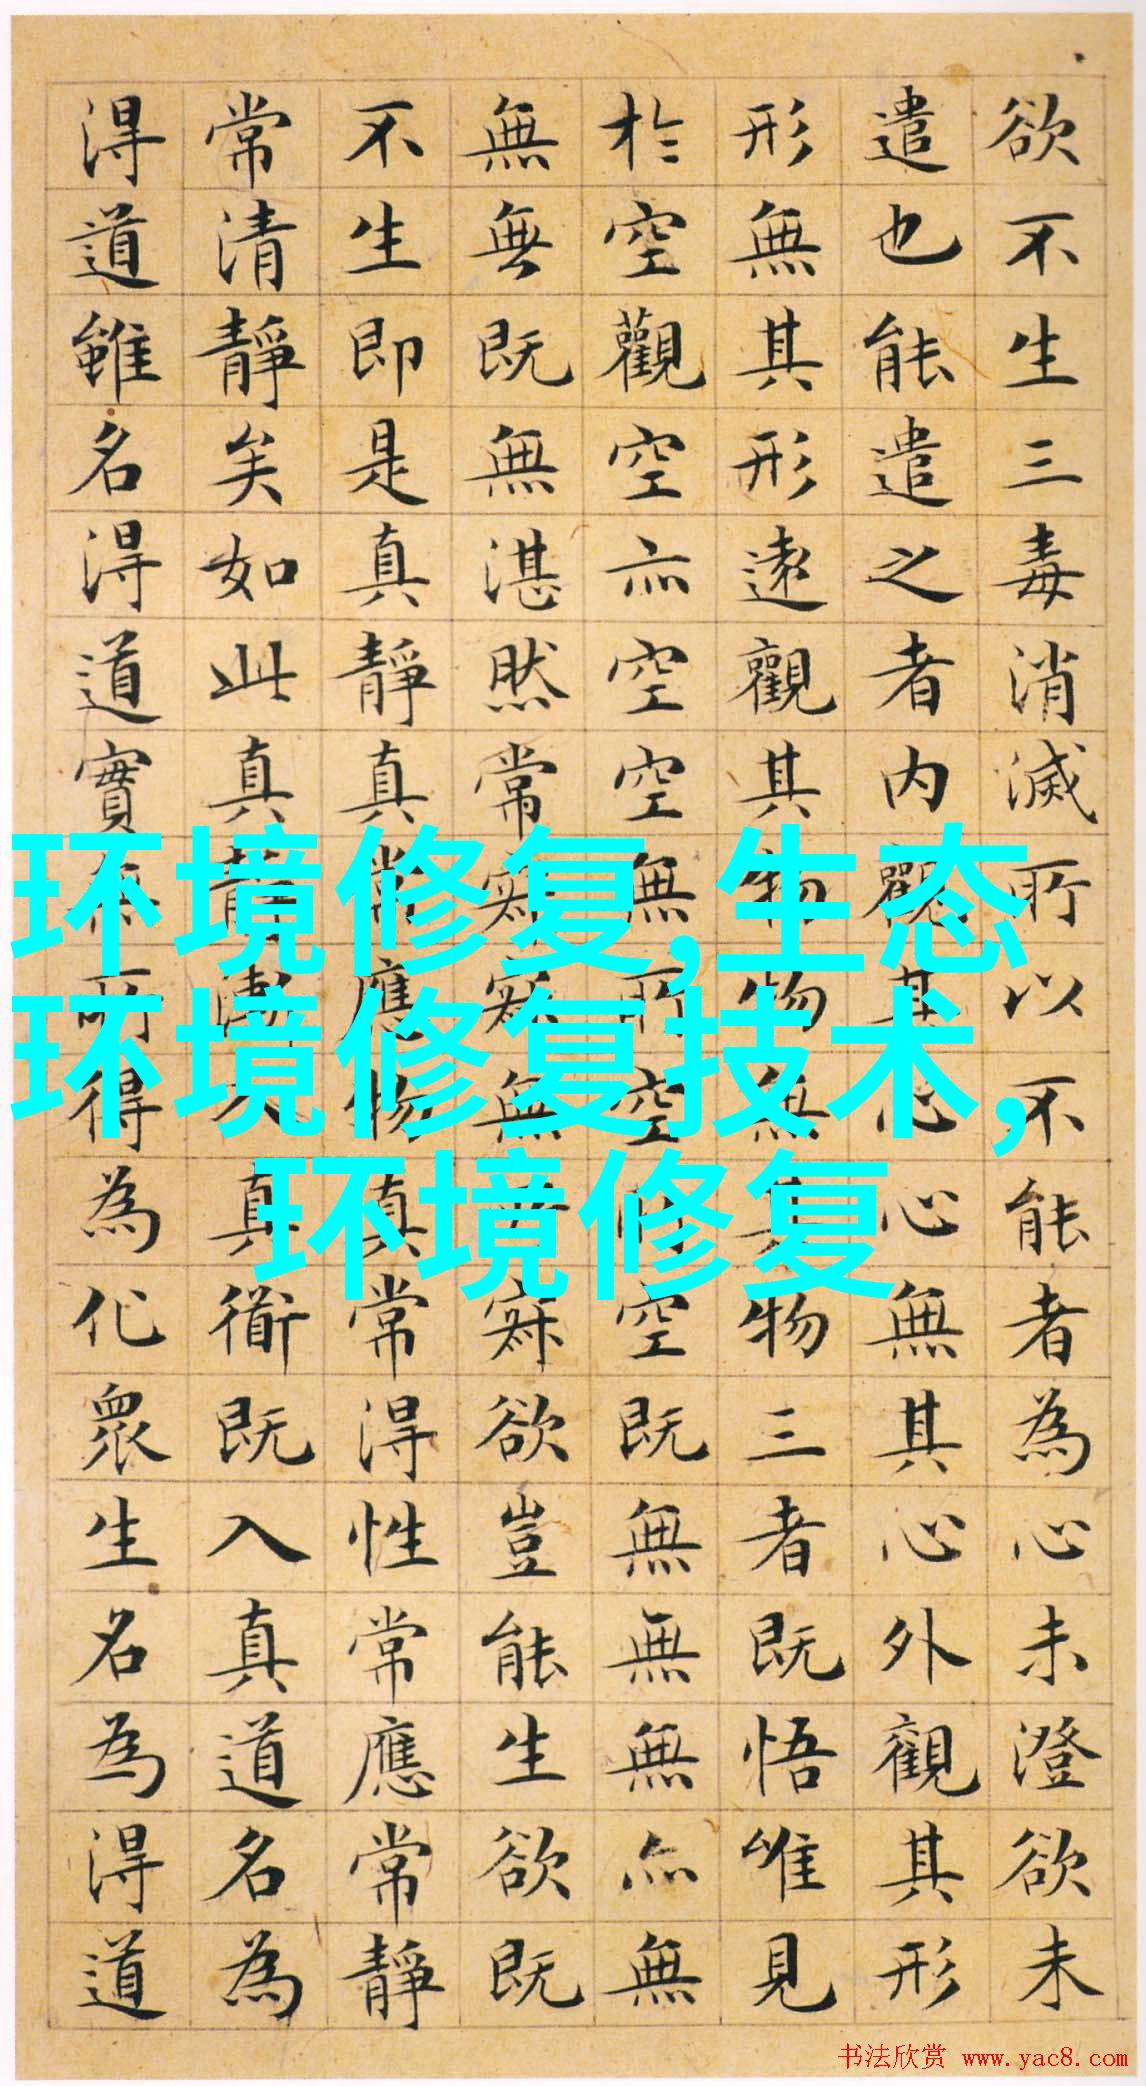 欲不生三毒消滅所以不能者為心未澄欲未
遣也能遣之者内觀其心心無其心外觀其形
形無其形遠觀其物物無其物三者既悟唯見
於空觀空亦空空無所空所空既無無無亦無
無無既無湛然常寂寂無所寂欲豈能生欲既
不生即是真靜真常應物真常得性常應常靜
常清靜矣如此真靜漸入真衜既入真道名為
得道雖名得道實無所得為化眾生名為得道
环境修复,生态
环境修复技术,
环境修复
书法欣赏 www.yac8.com